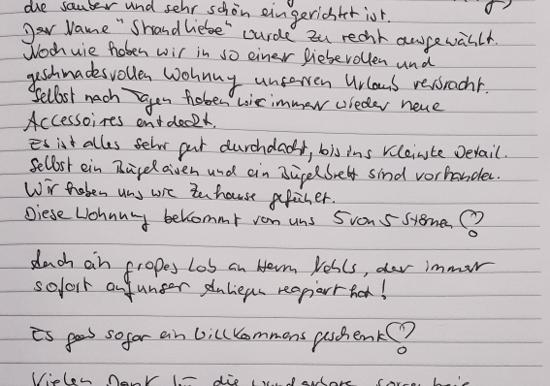 die sauber und sehr schön eingerichtet ist.
Der Name "Strandliebe" wurde zu recht ausgewählt.
Noch nie haben wir in so einer liebevollen und
geschmacksvollen Wohnung unseren Urlaub verbracht.
Selbst nach Tagen haben wir immer wieder neue
Accessoires entdeckt.
Es ist alles sehr gut durchdacht, bis ins kleinste Detail.
Selbst ein Bügeleisen und ein Bügelbrett sind vorhanden.
Wir haben uns wie zuhause gefühlt.
Diese Wohnung bekommt von uns 5 von 5 Sternen
Auch ein großes Lob an Herrn, der immer
sofort auf unser Anliegen reagiert hat!
Es gab sogar ein Willkommensgeschenk
Vielen Dank für die wunderbare